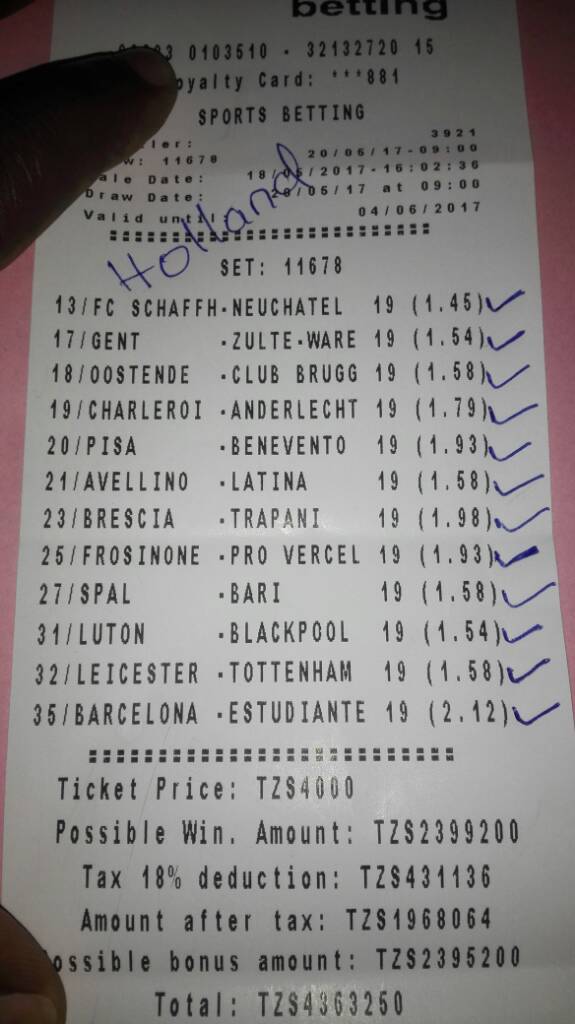 betting
0103510 - 32132720 15
oyalty Card: ***881
SPORTS BETTING
ler: 3921
w: 11678 20/06/17-09:00
ale Date: 18/05/2017-16:02:36
Draw Date: /05/17 at 09:00
Valid until 04/06/2017
Holland
SET: 11678
13/FC SCHAFFH-NEUCHATEL 19 (1.45)
17/GENT -ZULTE-WARE 19 (1.54)
18/OOSTENDE -CLUB BRUGG 19 (1.58)
19/CHARLEROI -ANDERLECHT 19 (1.79)
20/PISA -BENEVENTO 19 (1.93)
21/AVELLINO -LATINA 19 (1.58)
23/BRESCIA -TRAPANI 19 (1.98)
25/FROSINONE -PRO VERCEL 19 (1.93)
27/SPAL -BARI 19 (1.58)
31/LUTON -BLACKPOOL 19 (1.54)
32/LEICESTER -TOTTENHAM 19 (1.58)
35/BARCELONA -ESTUDIANTE 19 (2.12)
Ticket Price: TZS4000
Possible Win. Amount: TZS2399200
Tax 18% deduction: TZS431136
Amount after tax: TZS1968064
ossible bonus amount: TZS2395200
Total: TZS4363250